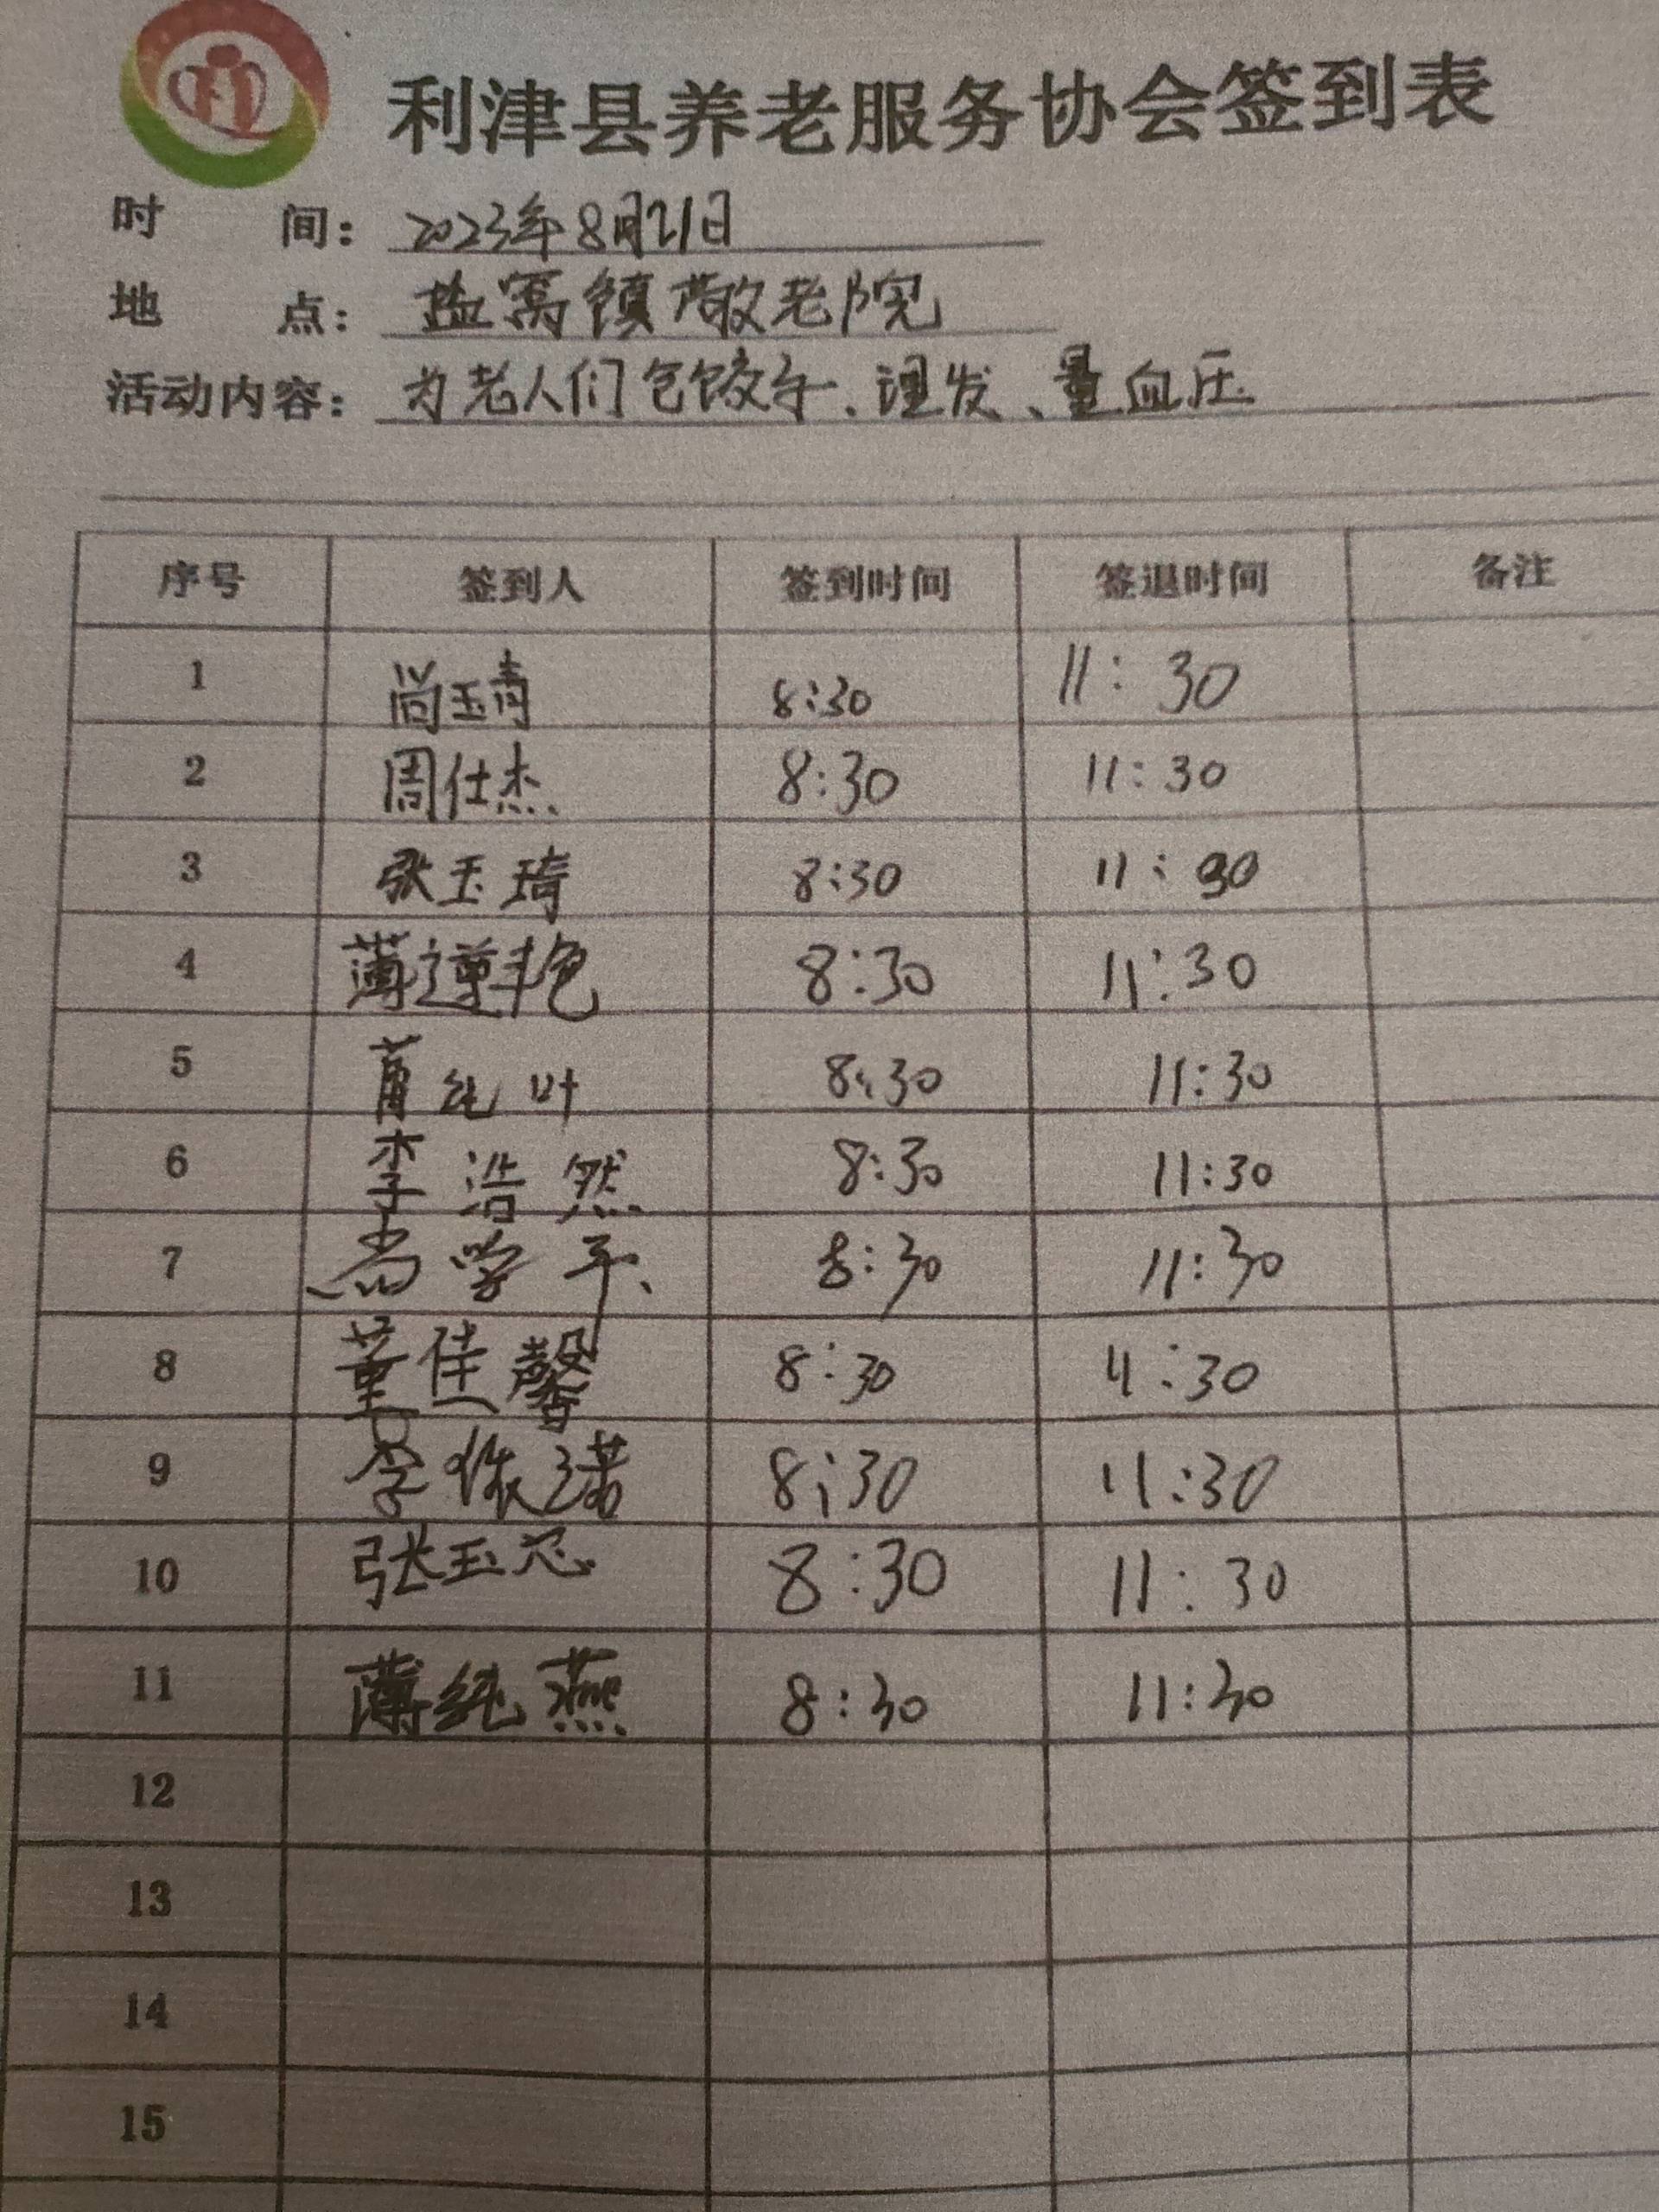 利津县养老服务协会签到表
时 间: 2023年8月21日
地 点: 盐窝镇敬老院
活动内容: 为老人们包饺子、理发、量血压
序号 签到人 签到时间 签退时间 备注
1 尚玉青 8:30 11:30
2 周仕杰 8:30 11:30
3 张玉琦 8:30 11:30
4 薄遵艳 8:30 11:30
5 叶 8:30 11:30
6 李浩然 8:30 11:30
7 8:30 11:30
8 董佳馨 8:30 11:30
9 李 诺 8:30 11:30
10 张玉芯 8:30 11:30
11 薄纯燕 8:30 11:30
12
13
14
15